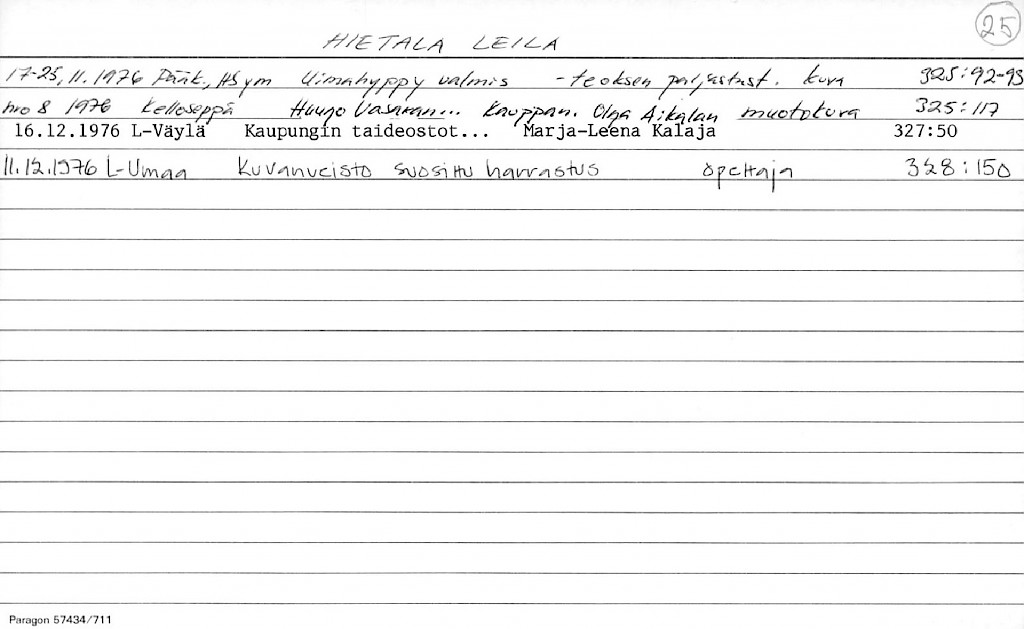 25
HIETALA LEILA
17-25.11.1976 Pääk., HS ym Uimahyppy valmis - teoksen paljastust. kuva 325:92-93
nro 8 1976 Kelloseppä Huugo Vasaran... Kauppan. Olga Aikalan muotokuva 325:117
16.12.1976 L-Väylä Kaupungin taideostot... Marja-Leena Kalaja 327:50
11.12.1976 L-Umaa Kuvanveisto suosittu harrastus opettaja 328:150
Paragon 57434/711